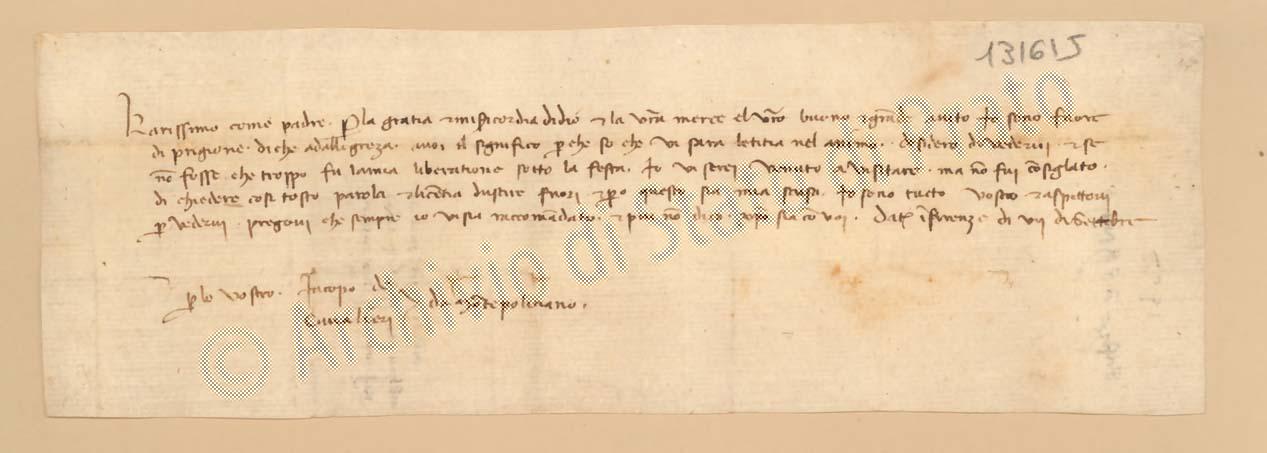 131615
Karissimo come padre. Per la gratia et misericordia di dio et la vostra merce el vostro buono et grande aiuto Io sono fuore
di prigione. di che ad allegreza. a voi il significo perche so che vi sara letitia nel animo. desidero di vedervi. et se
non fosse. che troppo fu la mia liberatione sotto la festa. Io vi serei venuto a visitare. ma non fui consiglato.
di chiedere cosi tosto parola et licentia duscire fuori et pero questo sia mia scusa. Io sono tucto vostro et aspettovi
per vedervi. pregovi che sempre io vi sia raccomandato. et piu non dico. xpo sia con voi. Data in firenze di vii di Settebre
Per lo vostro. Iacopo de
Cavalieri da montepoliciano.
© Archivio di Stato di Prato